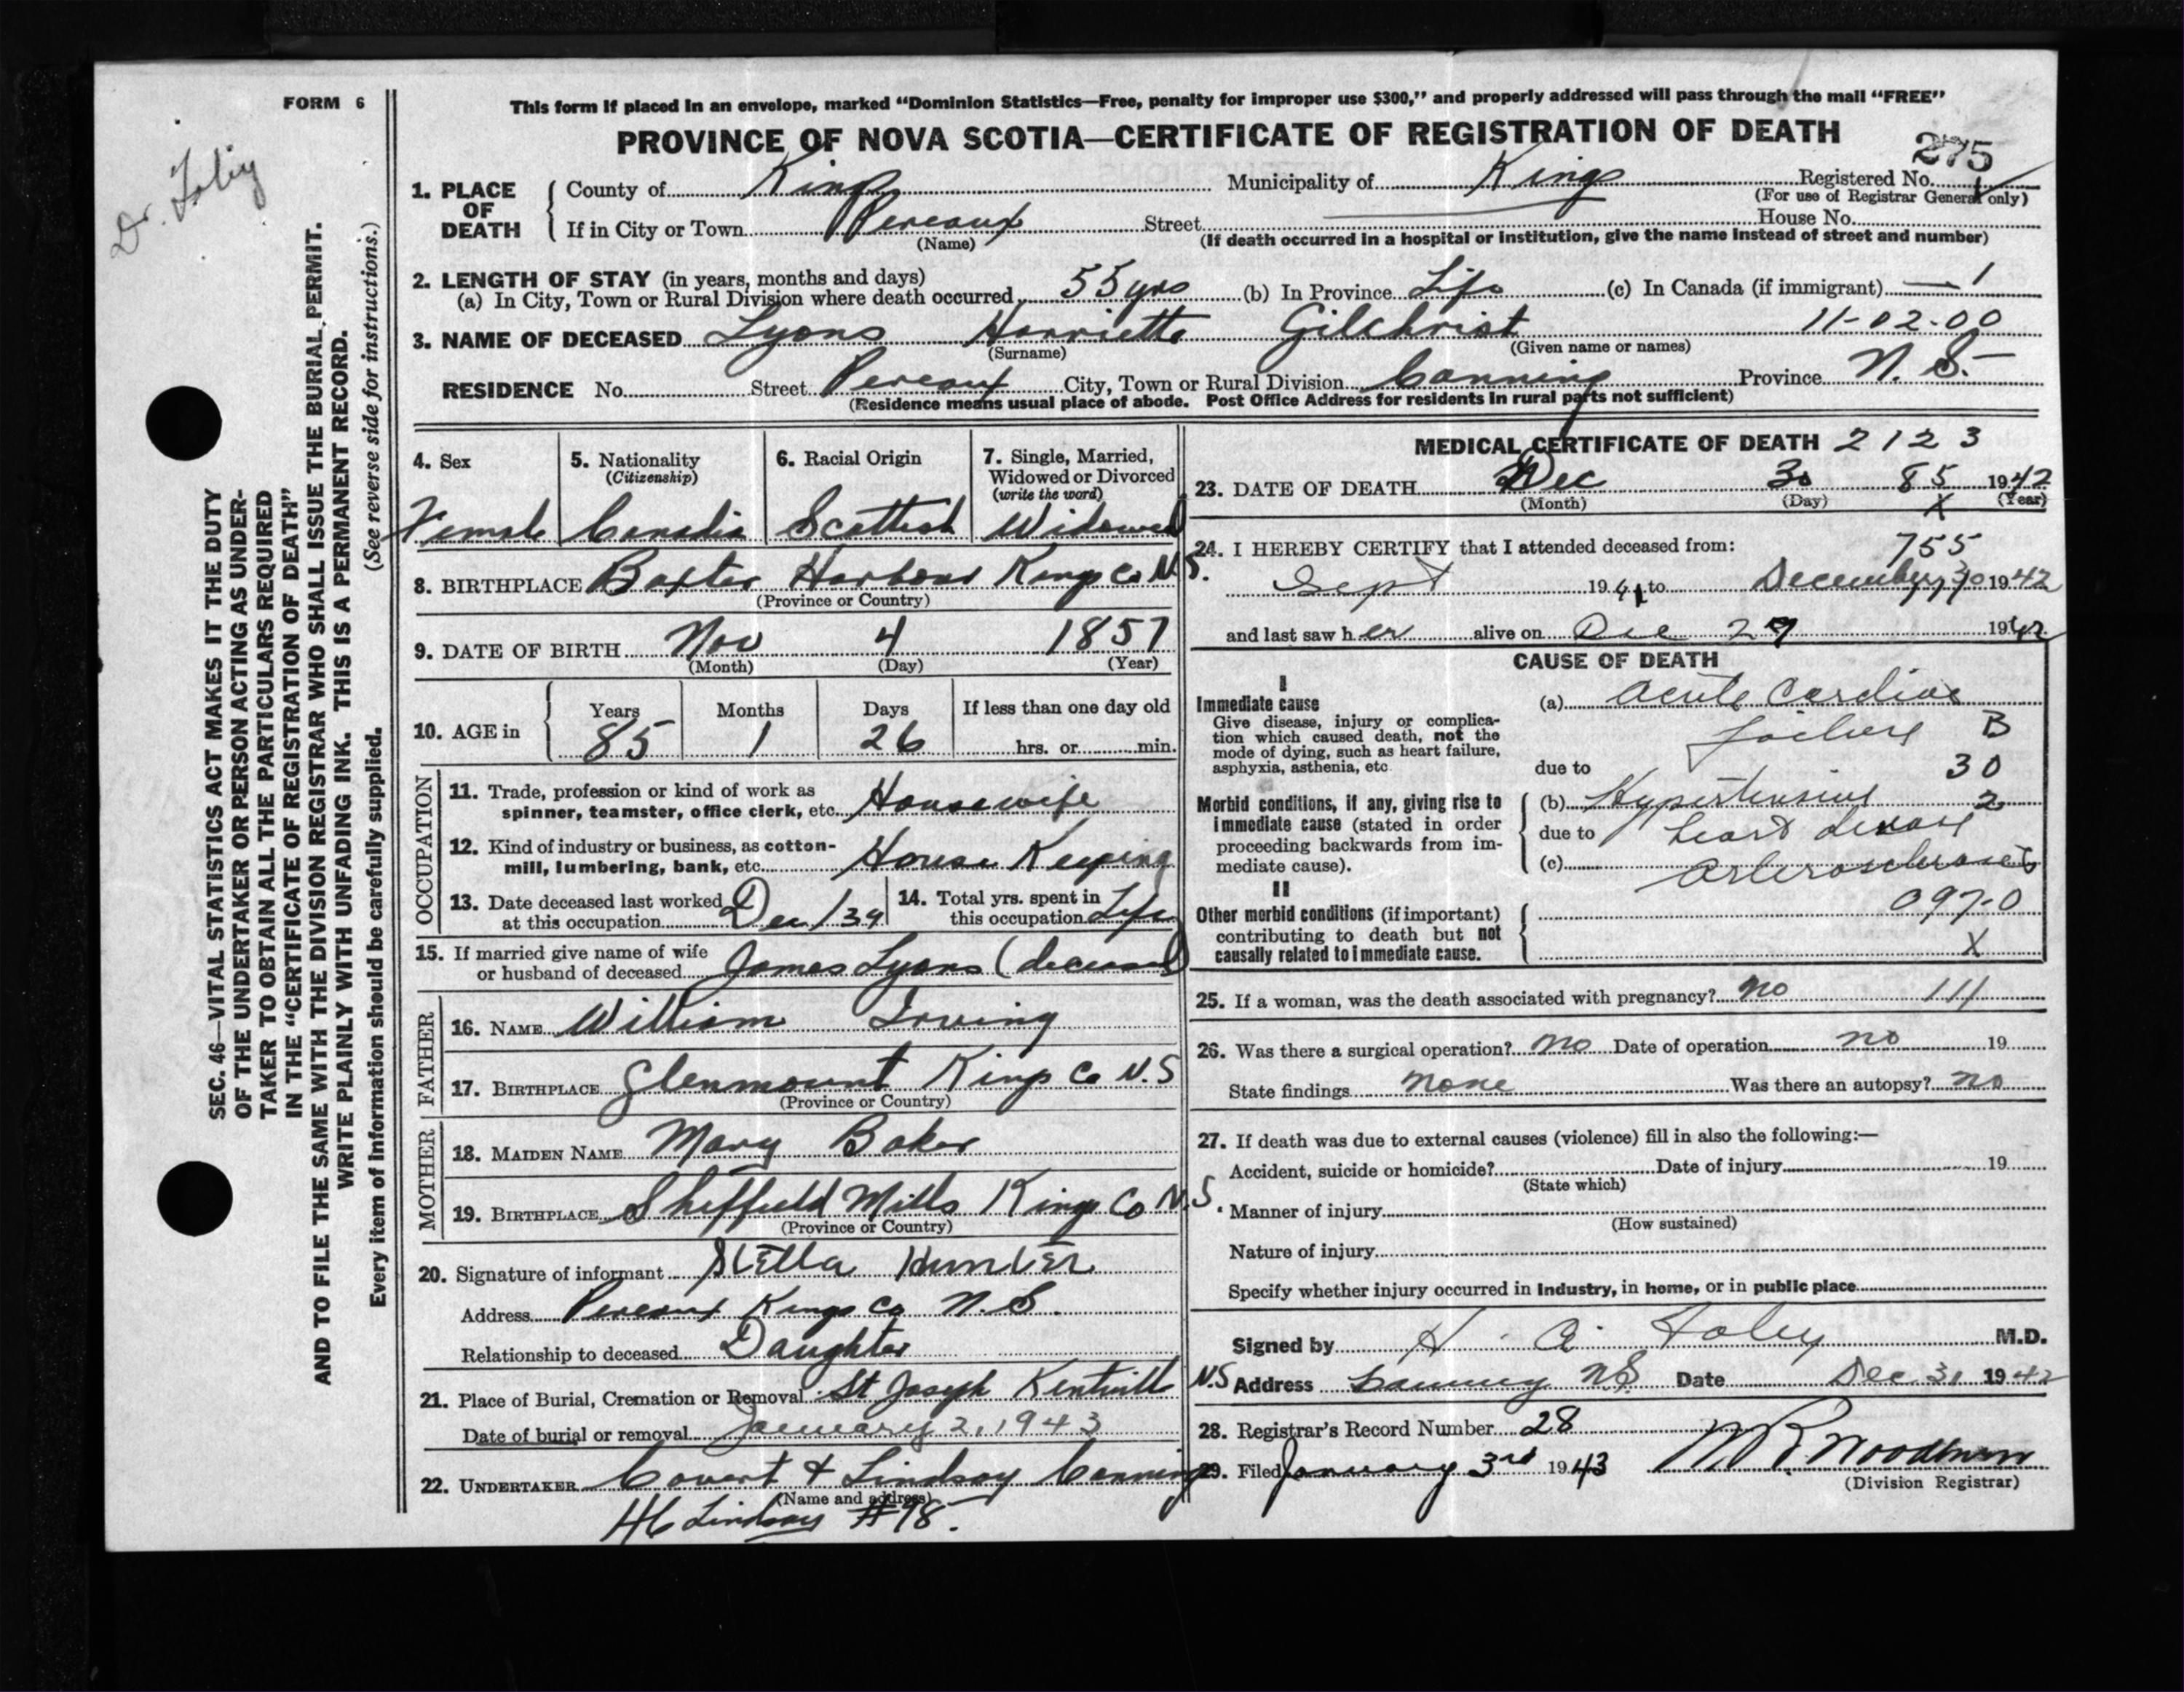 FORM 6
This form if placed in an envelope, marked "Dominion Statistics—Free, penalty for improper use $300," and properly addressed will pass through the mail "FREE"
PROVINCE OF NOVA SCOTIA—CERTIFICATE OF REGISTRATION OF DEATH
275
1. PLACE OF DEATH
County of Kings Municipality of Kings Registered No.
(For use of Registrar General only)
If in City or Town Pereaux Street House No.
(Name) (If death occurred in a hospital or institution, give the name instead of street and number)
2. LENGTH OF STAY (in years, months and days)
(a) In City, Town or Rural Division where death occurred 55 yrs (b) In Province Life (c) In Canada (if immigrant) — 1
3. NAME OF DECEASED Lyons Harriette Gilchrist 11-02-00
(Surname) (Given name or names)
RESIDENCE No. Street Pereaux City, Town or Rural Division Canning Province N. S.
(Residence means usual place of abode. Post Office Address for residents in rural parts not sufficient)
4. Sex
Female
5. Nationality
(Citizenship)
Canadia
6. Racial Origin
Scottish
7. Single, Married, Widowed or Divorced
(write the word)
Widowed
8. BIRTHPLACE Baxter Harbour Kings Co N.S.
(Province or Country)
9. DATE OF BIRTH Nov 4 1857
(Month) (Day) (Year)
10. AGE in
Years Months Days If less than one day old
85 1 26 hrs. or min.
OCCUPATION
11. Trade, profession or kind of work as
spinner, teamster, office clerk, etc. Housewife
12. Kind of industry or business, as cotton-
mill, lumbering, bank, etc. House Keeping
13. Date deceased last worked
at this occupation Dec / 39
14. Total yrs. spent in
this occupation Life
15. If married give name of wife
or husband of deceased James Lyons (deceased
FATHER
16. NAME William Irving
17. BIRTHPLACE Glenmount Kings Co N.S
(Province or Country)
MOTHER
18. MAIDEN NAME Mary Baker
19. BIRTHPLACE Sheffield Mills Kings Co N.S.
(Province or Country)
20. Signature of informant Stella Hunter
Address Pereaux Kings Co N. S.
Relationship to deceased Daughter
21. Place of Burial, Cremation or Removal St Joseph Kentville N.S
Date of burial or removal January 2, 1943
22. UNDERTAKER Covert & Lindsay Canning
(Name and address)
46 Lindsay #98
MEDICAL CERTIFICATE OF DEATH 2123
23. DATE OF DEATH Dec 30 85 1942
(Month) (Day) X (Year)
24. I HEREBY CERTIFY that I attended deceased from: 755
Sept 1941 to December 30 1942
and last saw her alive on Dec 29 1942
CAUSE OF DEATH
I
Immediate cause
Give disease, injury or complica-
tion which caused death, not the
mode of dying, such as heart failure,
asphyxia, asthenia, etc.
(a) Acute Cardiac
failure B
due to 30
Morbid conditions, if any, giving rise to
immediate cause (stated in order
proceeding backwards from im-
mediate cause).
(b) Hypertensive 2
due to heart disease
(c) Arterosclerosis
II
Other morbid conditions (if important)
contributing to death but not
causally related to immediate cause.
097-0
X
25. If a woman, was the death associated with pregnancy? no 111
26. Was there a surgical operation? no Date of operation no 19
State findings none Was there an autopsy? no
27. If death was due to external causes (violence) fill in also the following:—
Accident, suicide or homicide? Date of injury 19
(State which)
Manner of injury
(How sustained)
Nature of injury
Specify whether injury occurred in Industry, in home, or in public place
Signed by H. A. Foley M.D.
Address Canning NS Date Dec 31 1942
28. Registrar's Record Number 28
29. Filed January 3rd 1943
(Division Registrar)
Dr. Foley
SEC. 46—VITAL STATISTICS ACT MAKES IT THE DUTY
OF THE UNDERTAKER OR PERSON ACTING AS UNDER-
TAKER TO OBTAIN ALL THE PARTICULARS REQUIRED
IN THE "CERTIFICATE OF REGISTRATION OF DEATH"
AND TO FILE THE SAME WITH THE DIVISION REGISTRAR WHO SHALL ISSUE THE BURIAL PERMIT.
WRITE PLAINLY WITH UNFADING INK. THIS IS A PERMANENT RECORD.
Every item of information should be carefully supplied. (See reverse side for instructions.)